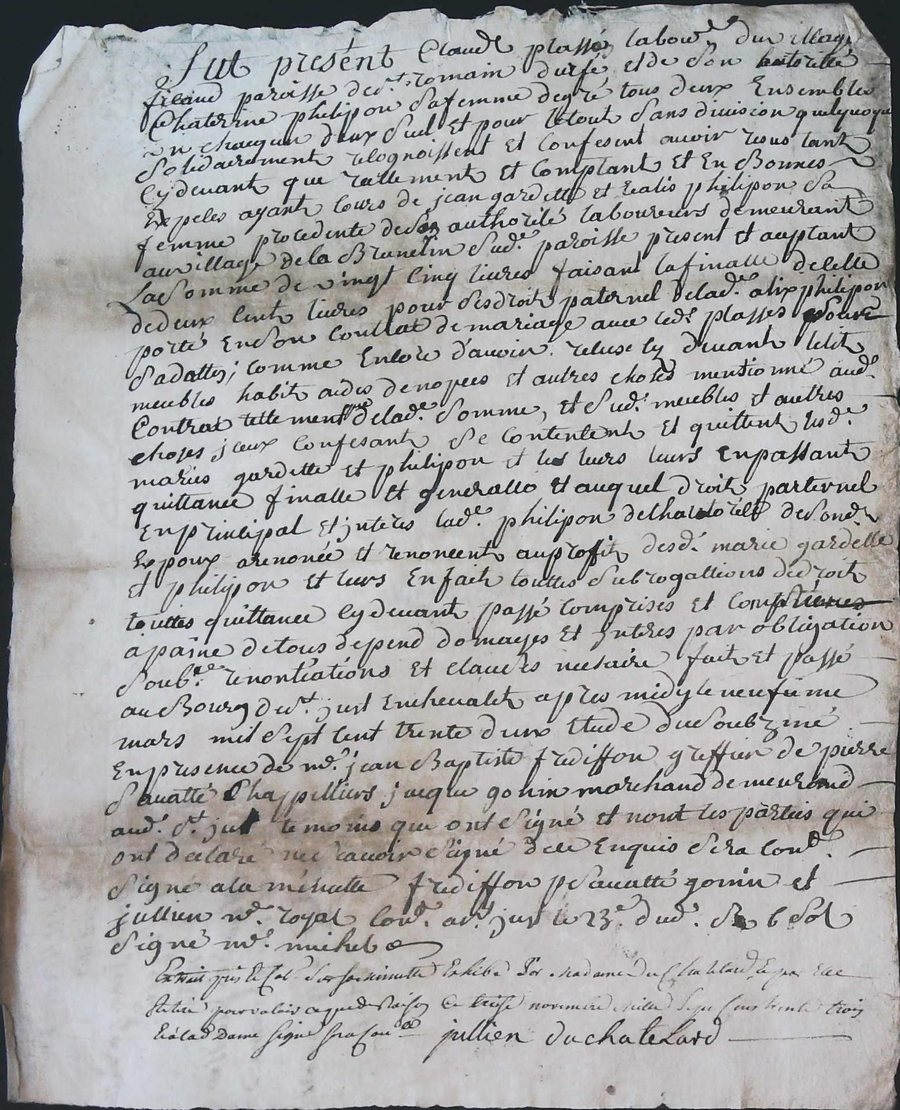 fut present Claude plasse labour. du village
filaud paroisse de st. romain durfé et de son autorité
Chaterine philipon sa femme de gré tous deux Ensembles
Un chacun deux seul et pour le tout sans division quelquoque
solidairement recognoissent et confesent avoir resus tant
cydevant que reellement et Comptant et En Bonnes
Expeses ayant cours de jean gardette et philipon sa
femme procedente de son authorité laboureurs demeurant
au village de la Brunelin sud. paroisse present et auptant
La Somme de vingt Cinq livres faisant la finalle de celle
de deux Cent livres pour ses droit paternel de lad.e alix philipon
porté En son Contrat de mariage avec led. plasses
sa datte, comme Encore d'avoir reluse cy devant le lit
meubles habit aides de nopces et autres choses mentionné aud.
Contrat tellement de lad.e somme, et sud. meubles et autres
choses jceux Confesant se Contentent et quittent lesd.
mariés gardette et philipon et les leurs leurs En passant
quittance finalle et generalle et auquel droit parternel
En principal et jnteres lad.e philipon de de sond.
Expoux arenoncé et renoncent au profit desd. marie gardette
et philipon et leurs En fait touttes subrogattions de droit
touttes quittance cydevant passé comprises et
a paine de tous depend domages et jnteres par obligation
soub.e renontiations et clauses necesaire fait et passé
au Bourg de st. just En chevalet apres midy le neufieme
mars mil sept cent trente deux Etude du soubzine
En presence de me. jean Baptiste frediffon greffier de pierre
sauatté Chappelliers jacque gonin marchand demeurand
aud. st. just temoins qui ont signé et nont les parties qui
ont declaré ne scavoir signé de ce Enquis sera Con.
signé a la menutte frediffon p sauatté gonin et
jullien n.e royal Con. a st. just le 23e dud. 6 sol
signé me. michel
Extrait pris et Col. sur sa Minutte Exhibé par Madame du Chatelard, et par Elle
retiré ce treise novembre mille sept Cens trente trois
Et a lad Dame signé
jullien duchatelard